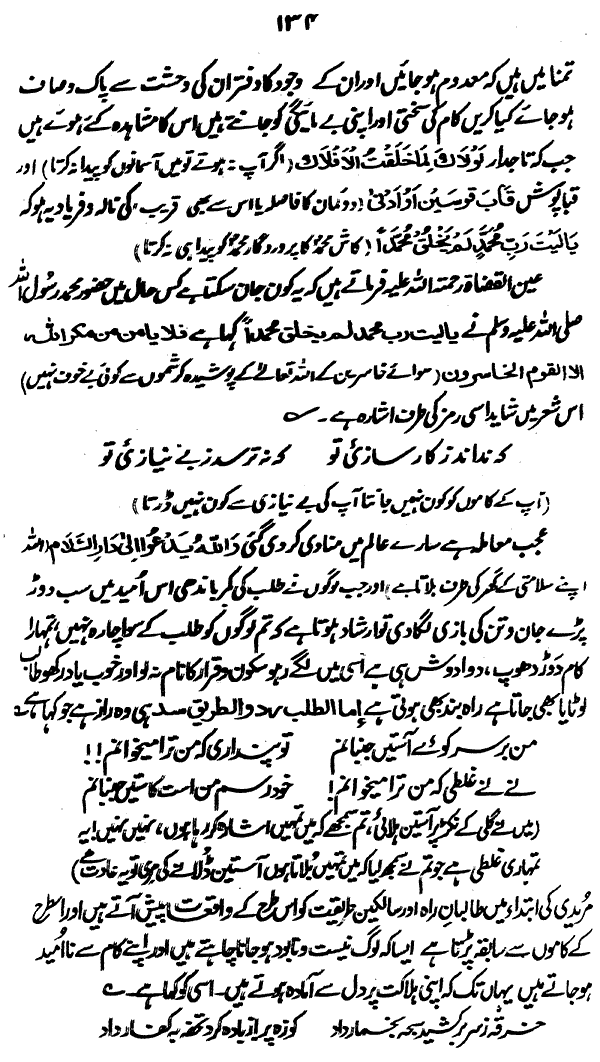 ۱۳۴
تمنا میں ہیں کہ معدوم ہو جائیں اور ان کے وجود کا دفتر ان کی وحشت سے پاک و صاف
ہو جائے کیا کریں کام کی سختی اور اپنی بے مایگی کو جانتے ہیں اس کا مشاہدہ کئے ہوئے ہیں
جب کہ تاجدار لَوْلَاكَ لَمَا خَلَقْتُ الْاَفْلَاكَ (اگر آپ نہ ہوتے تو میں آسمانوں کو پیدا نہ کرتا) اور
قبا پوش قَابَ قَوْسَیْنِ اَوْ اَدْنیٰ (دو کمان کا فاصلہ یا اس سے بھی قریب) کی نالہ و فریاد یہ ہو کہ
یَا لَیْتَ رَبَّ مُحَمَّدٍ لَمْ یَخْلُقْ مُحَمَّدًا (کاش محمدؐ کا پروردگار محمدؐ کو پیدا ہی نہ کرتا)
عین القضاۃ رحمتہ اللہ علیہ فرماتے ہیں کہ یہ کون جان سکتا ہے کس حال میں حضور محمد رسول اللہ
صلی اللہ علیہ وسلم نے یالیت رب محمد لم یخلق محمداً کہا ہے فلا یا من من مکر اللہ
الا القوم الخاسرون (سوائے خاسرین کے اللہ تعالیٰ کے پوشیدہ کرشموں سے کوئی بے خوف نہیں)
اس شعر میں شاید اسی رمز کی طرف اشارہ ہے۔ ؎
کہ نداند ز کار سازئ تو کہ نہ ترسد ز بے نیازئ تو
(آپ کے کاموں کو کون نہیں جانتا آپ کی بے نیازی سے کون نہیں ڈرتا)
عجب معاملہ ہے سارے عالم میں منادی کر دی گئی وَاللهُ یَدْعُوا اِلیٰ دَارِ السَّلَامِ (اللہ
اپنے سلامتی کے گھر کی طرف بلاتا ہے) اور جب لوگوں نے طلب کی کمر باندھی اس اُمید میں سب دوڑ
پڑے جان و تن کی بازی لگا دی تو ارشاد ہوتا ہے کہ تم لوگوں کو طلب کے سوا چارہ نہیں، تمہارا
کام دَوڑ دھوپ، دوا دوش ہی ہے اسی میں لگے رہو سکون و قرار کا نام نہ لو اور خوب یاد رکھو طالب
لوٹایا بھی جاتا ہے راہ بند بھی ہوتی ہے اما الطلب رد والطریق سد یہی وہ راز ہے جو کہا ہے ؎
من بر سر کوئے آستیں جنبانم تو پنداری کہ من ترا میخوانم!!
نے نے غلطی کہ من ترا میخوانم! خود رسم من است کاستیں جنبانم
(میں نے گلی کے نکڑ پر آستین ہلائی، تم سمجھے کہ میں تمہیں اشارہ کر رہا ہوں، نہیں نہیں! یہ
تمہاری غلطی ہے جو تم نے سمجھ لیا کہ میں تمہیں بُلاتا ہوں آستین ڈلانے کی میری تو یہ عادت ہے)
مریدی کی ابتدا میں طالبانِ راہ اور سالکین طریقت کو اس طرح کے واقعات پیش آتے ہیں اور اسطرح
کے کاموں سے سابقہ پڑتا ہے ایسا کہ لوگ نیست و نابود ہو جانا چاہتے ہیں اور اپنے کام سے نا اُمید
ہو جاتے ہیں یہاں تک کہ اپنی ہلاکت پر دل سے آمادہ ہوتے ہیں۔ اسی کو کہا ہے۔ ؎
خرقہ ز سر بر کشید سبحہ بخمار داد کوزہ پر از بادہ کرد تحفہ بکفار داد